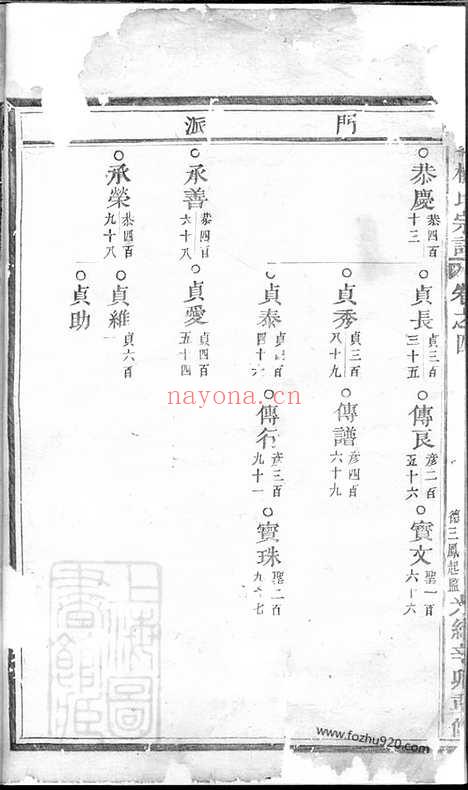 門 派
楊氏宗譜 卷之四
德三鳳起監
光緒辛卯重修
恭慶 恭四百十三
貞長 貞三百三十五
傳良 彦二百五十六
寳文 聖一百六十六
貞秀 貞三百八十九
傳譜 彦四百六十九
貞泰
傳行 彦三百九十一
寳珠 聖二百
承善 恭四百六十八
貞愛 貞四百五十四
承榮 恭四百九十八
貞維 貞六百一
貞助
上海圖書館藏
nayona.cn
www.fozhu920.com